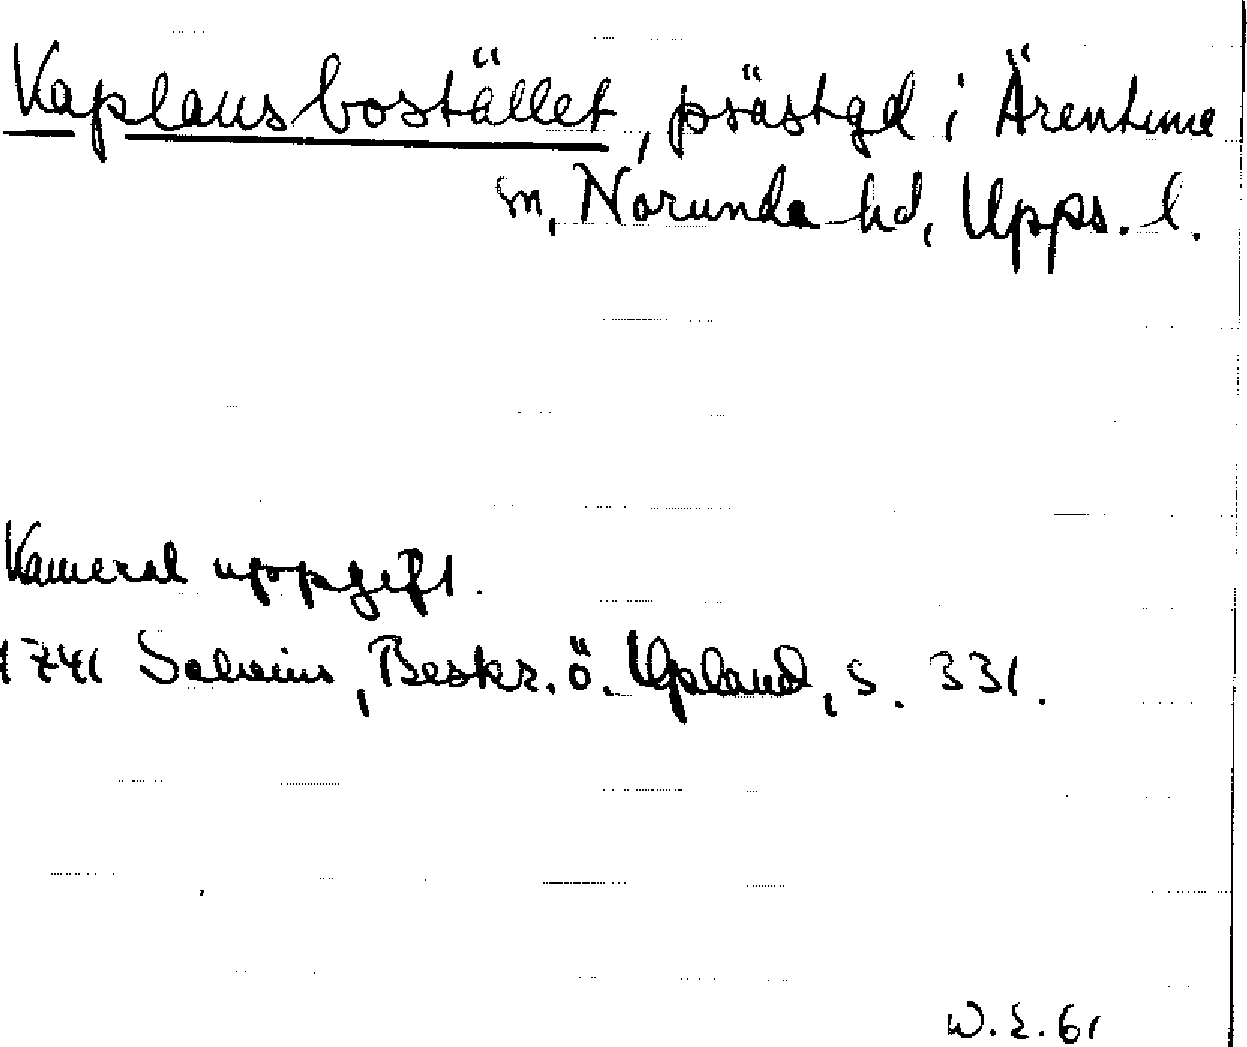 Kaplansbostället, prästgd i Ärentuna
sn, Norunda hd, Upps. l.
Kameral uppgift.
1741 Salvius, Beskr. ö. Upland, s. 331.
W. E. 61